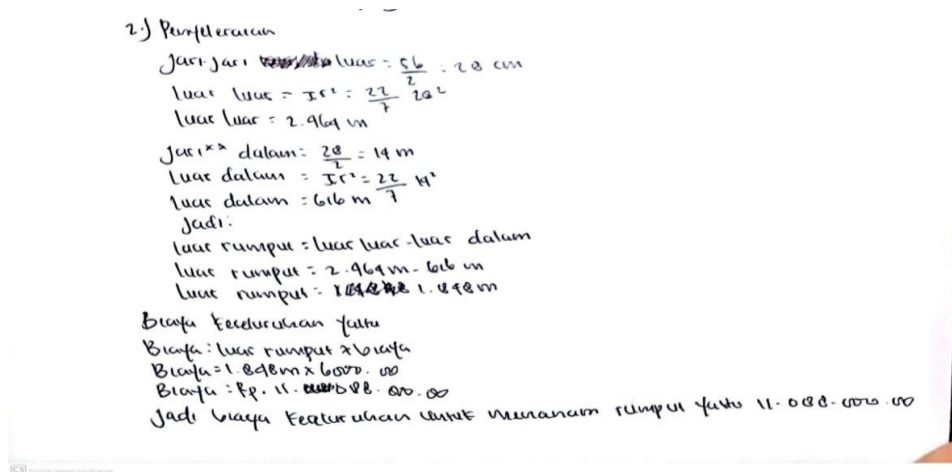 2.) Penyelesaian
Jari-Jari luar = 56/2 = 28 cm
luas luar = πr² = 22/7 28²
luas luar = 2.464 m
Jari** dalam = 28/2 = 14 m
Luas dalam = πr² = 22/7 14²
luas dalam = 616 m
Jadi:
luas rumput = luas luar - luas dalam
luas rumput = 2.464 m - 616 m
Luas rumput = 1.848 m
Biaya keseluruhan yaitu
Biaya: luas rumput x biaya
Biaya = 1.848 m x 6000.00
Biaya: Rp. 11. 088. 00.00
Jadi biaya untuk menanam rumput yaitu 11.088.000.00
CS